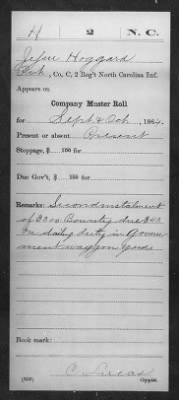 H 2 N. C.
Jesse Hoggard
Pvt, Co. C, 2 Reg't North Carolina Inf.
Appears on
Company Muster Roll
for Sept & Oct, 1864.
Present or absent Present
Stoppage, $ 100 for
Due Gov't, $ 100 for
Remarks: Second instalment
of $300 Bounty due $40
on daily duty in Govern
ment waggon yards
Book mark:
C. Lucas
(858) Copyist.